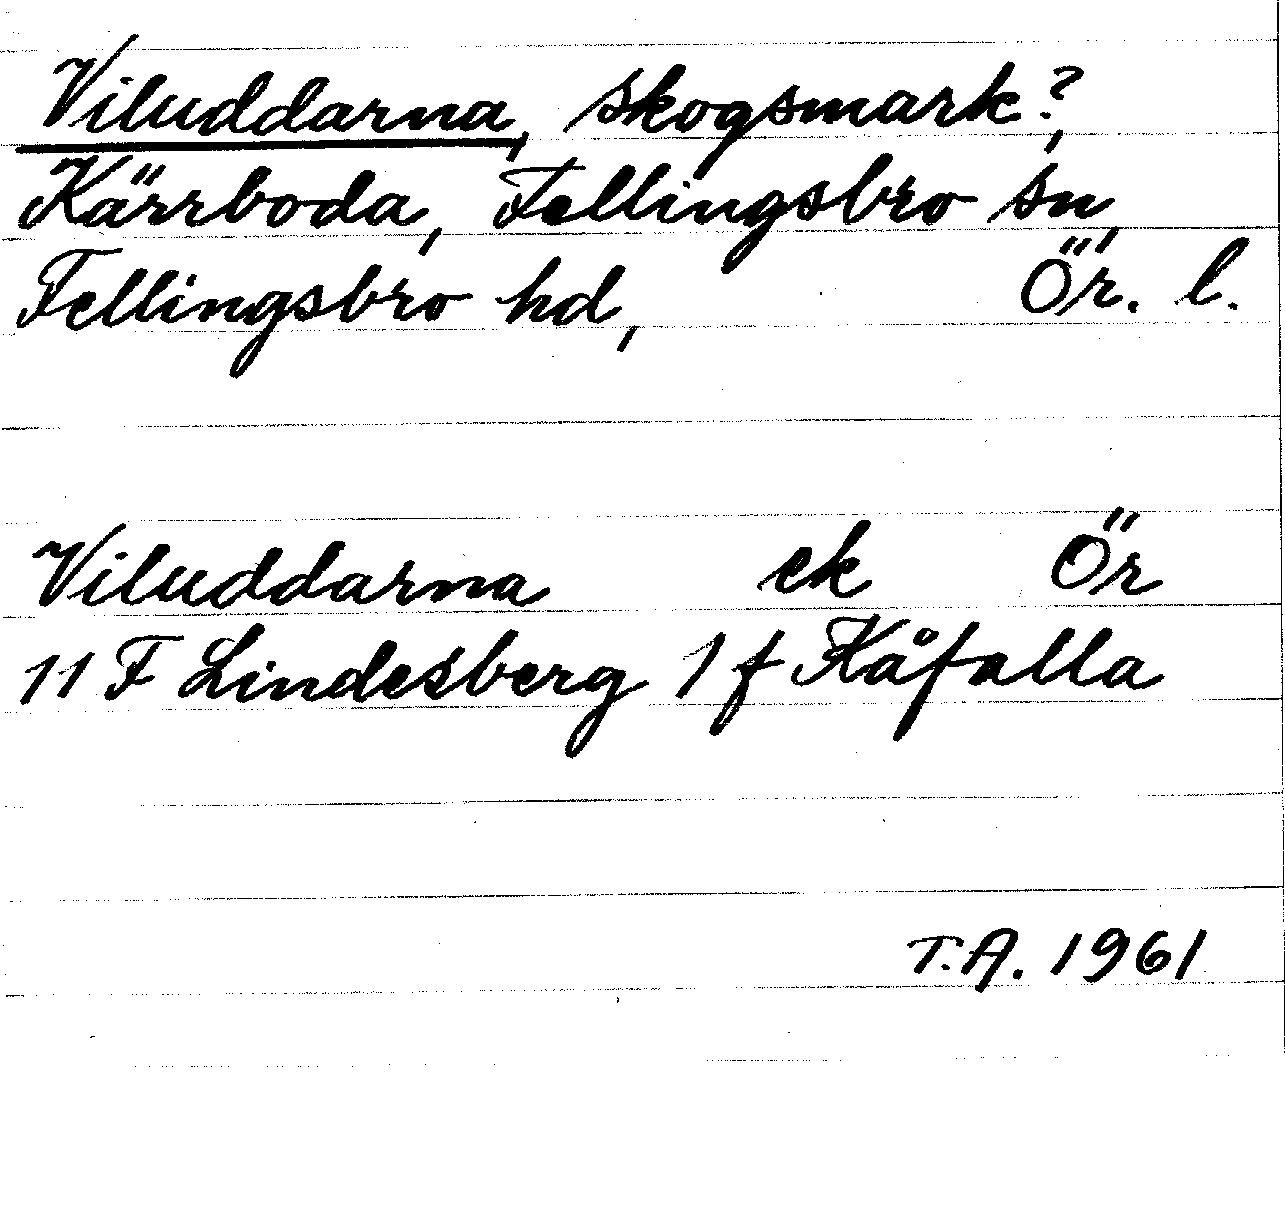 Viluddarna, skogsmark?,
Kärrboda, Fellingsbro sn,
Fellingsbro hd, Ör. l.
Viluddarna ek Ör
11 F Lindesberg 1 f Kåfalla
T.A. 1961